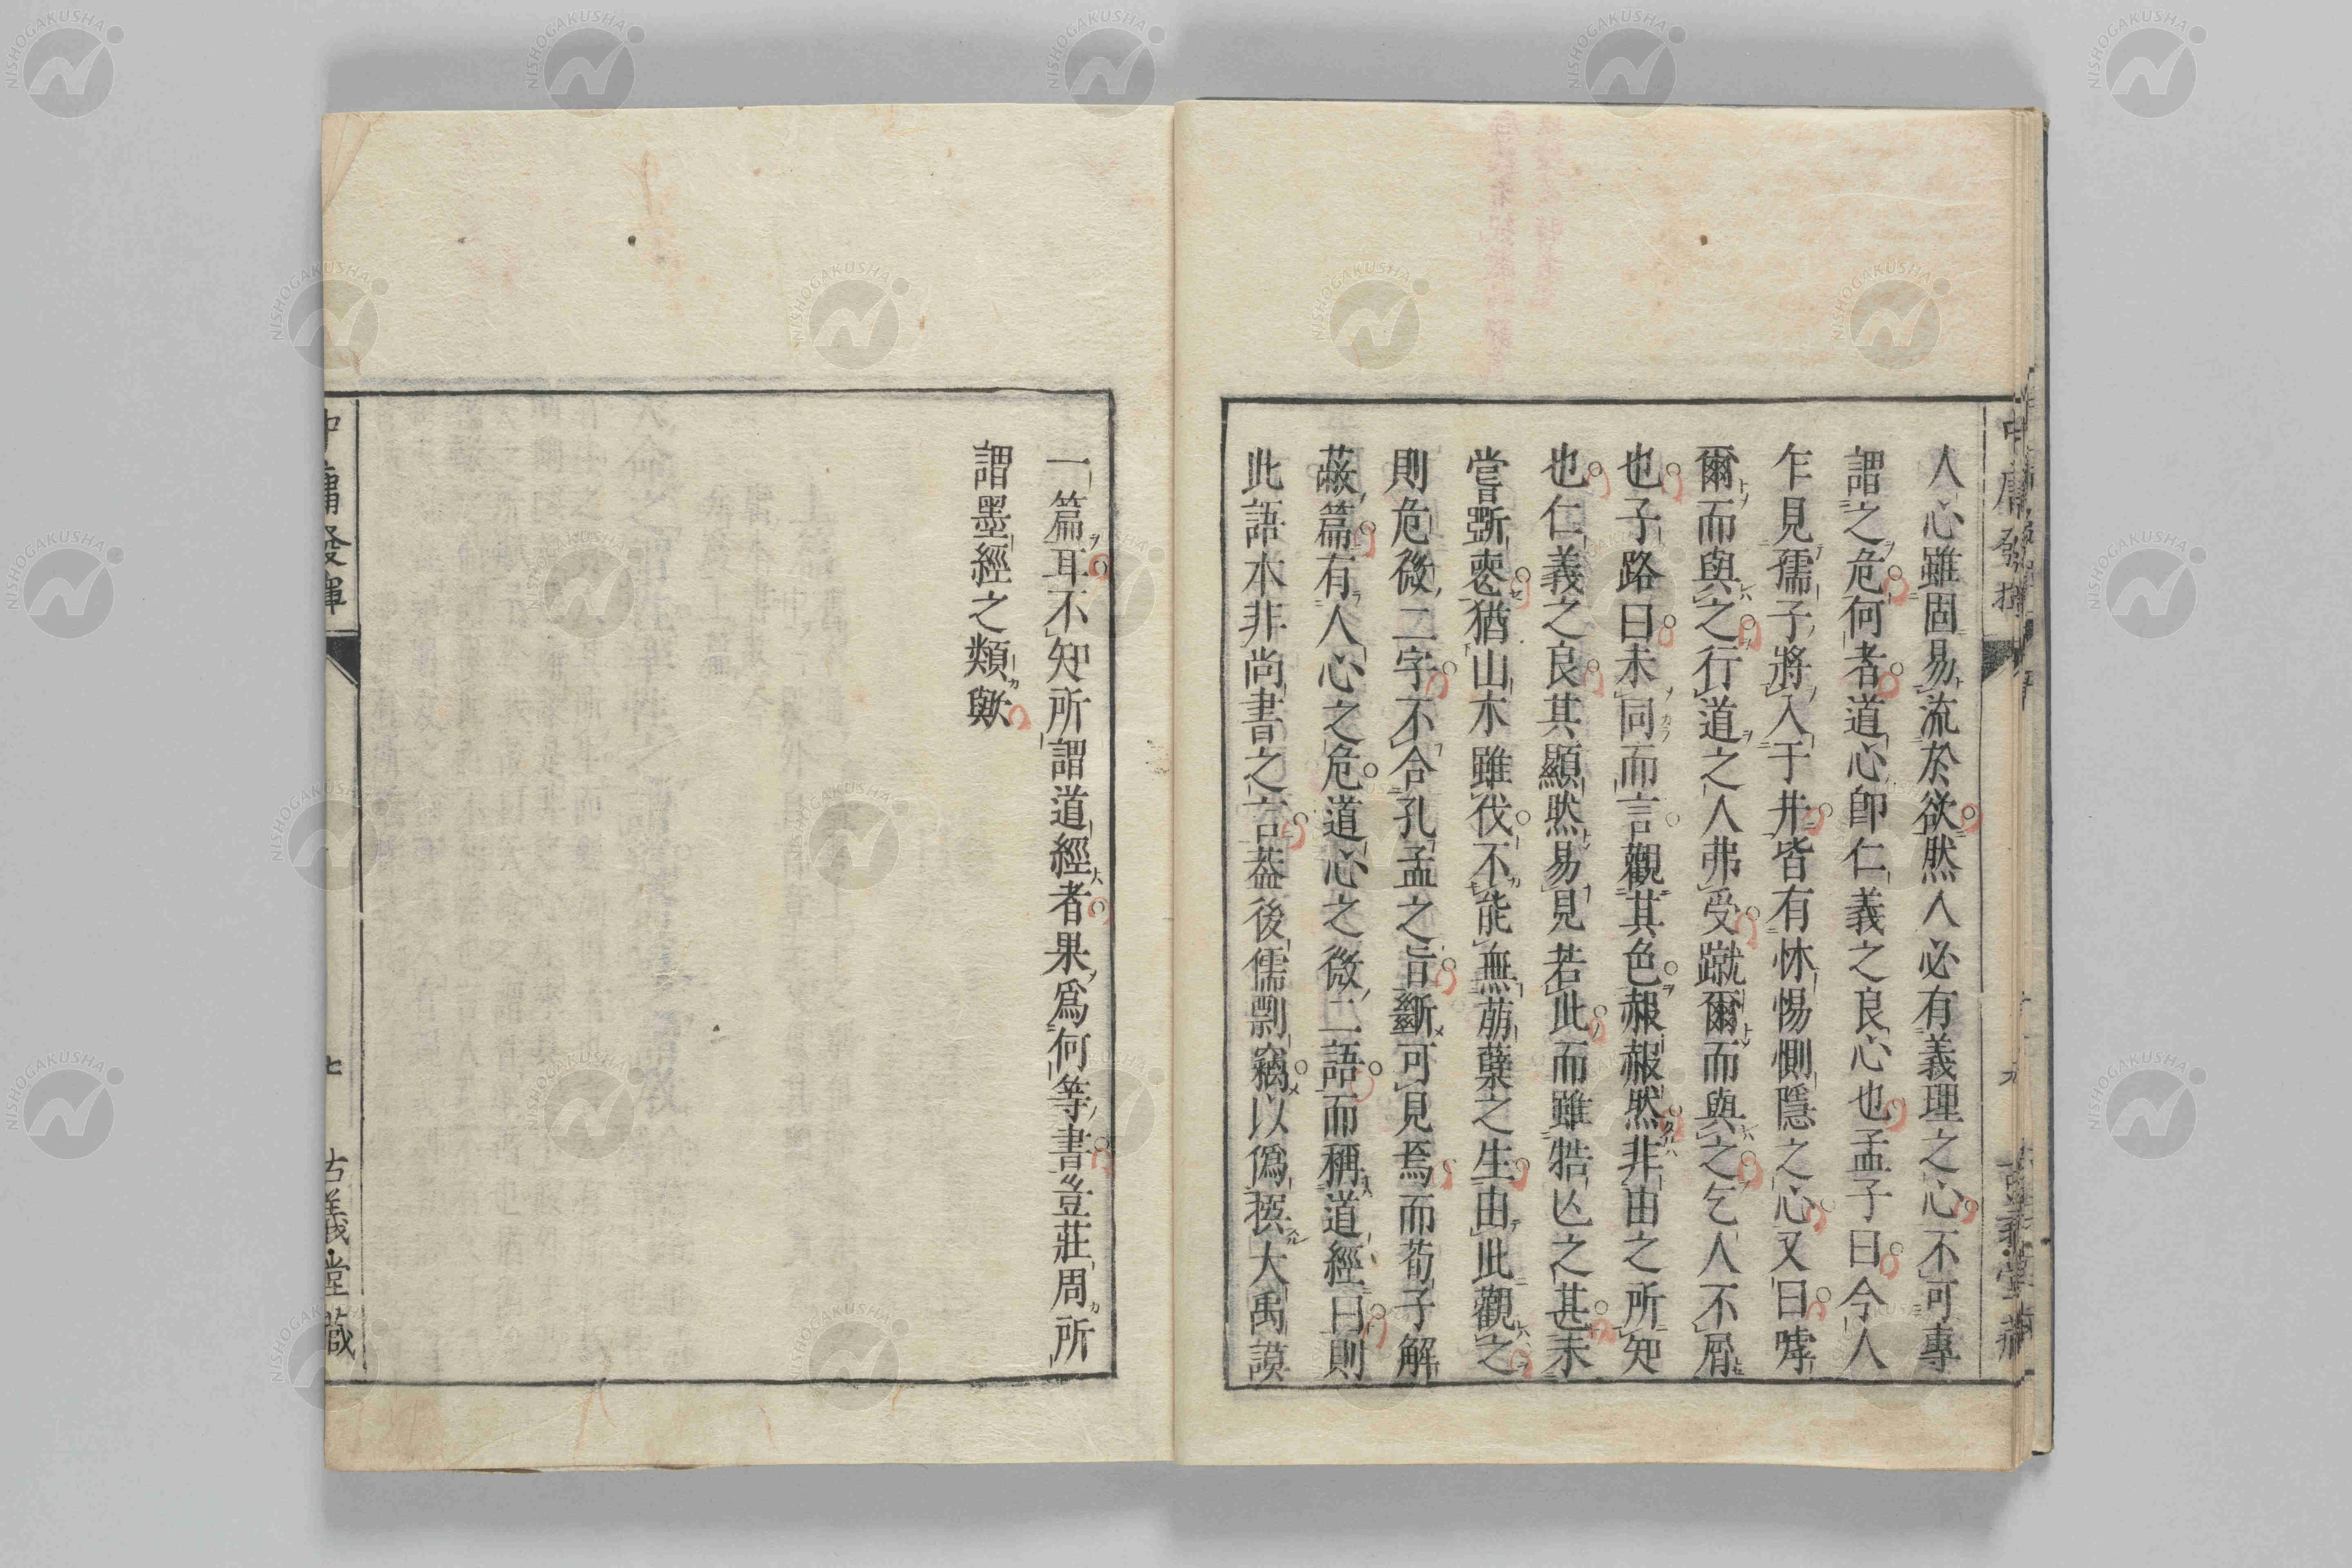 人心雖固易流於欲然人必有義理之心不可專
謂之危何者道心即仁義之良心也孟子曰今人
乍見孺子將入于井皆有怵惕惻隱之心又曰嘑
爾而與之行道之人弗受蹴爾而與之乞人不屑
也子路曰未同而言觀其色赧赧然非由之所知
也仁義之良其顯然易見若此而雖牿亾之甚未
嘗斲喪猶山木雖伐不能無萠蘖之生由此觀之
則危微二字不合孔孟之旨斷可見焉而荀子解
蔽篇有人心之危道心之微二語而稱道經曰則
此語本非尚書之言葢後儒剽竊以僞撰大禹謨
一篇耳不知所謂道經者果爲何等書豈莊周所
謂墨經之類歟
中庸發揮
七
古義堂藏
NISHOGAKUSHA